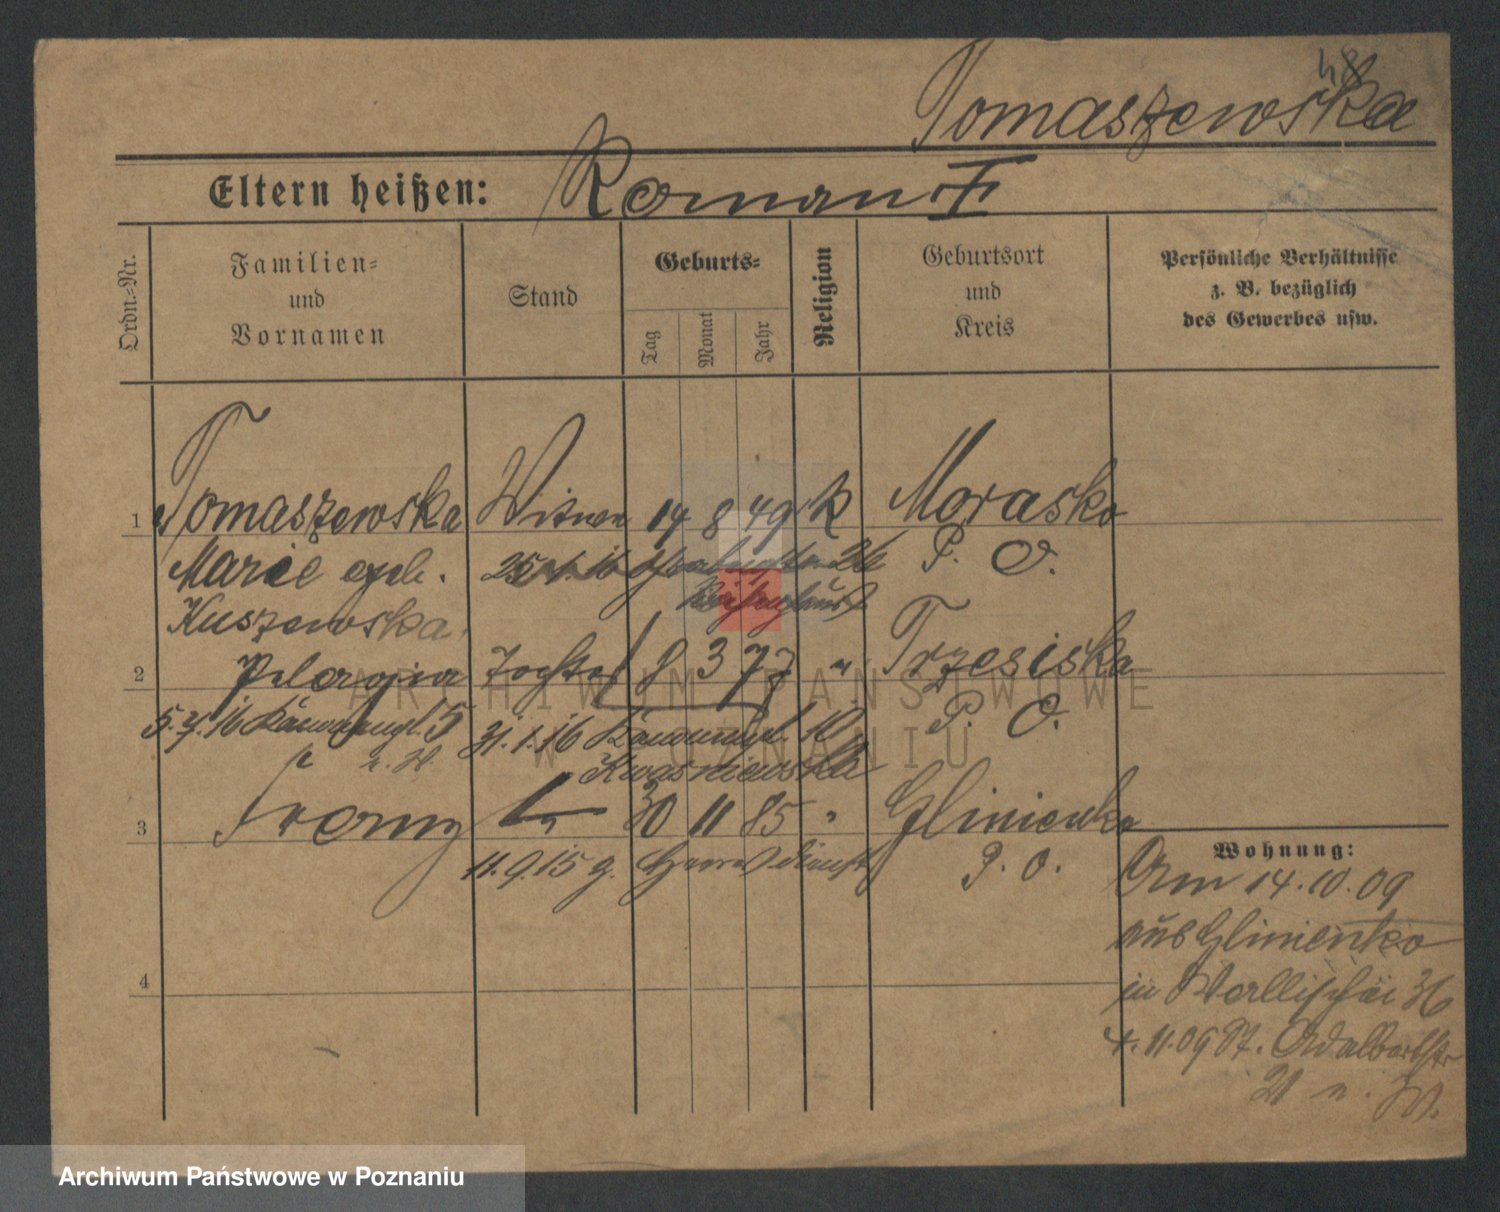 48
Tomaszewska
Eltern heißen: Roman
Ordn.-Nr.
Familien- und Vornamen
Stand
Geburts-
Tag Monat Jahr
Religion
Geburtsort und Kreis
Persönliche Verhältnisse z. B. bezüglich des Gewerbes usw.
1 Tomaszewska Witwe 14 8 49 k Morasko
Marie geb. 25. 1. 16 26 P. O.
Kuszewska
2 Pelagia Tochter 8 3 77 " Trzesiska
5. 16 5 31. 1. 16 10 P. O.
Kwasniewska
3 Franz 30 11 85 " Glinienko
11. 9. 15 P. O.
Wohnung:
Am 14. 10. 09
aus Glinienko
in Wallischei 36
4. 11. 09 Adalbertstr
21
4
ARCHIWUM PAŃSTWOWE
W POZNANIU
Archiwum Państwowe w Poznaniu